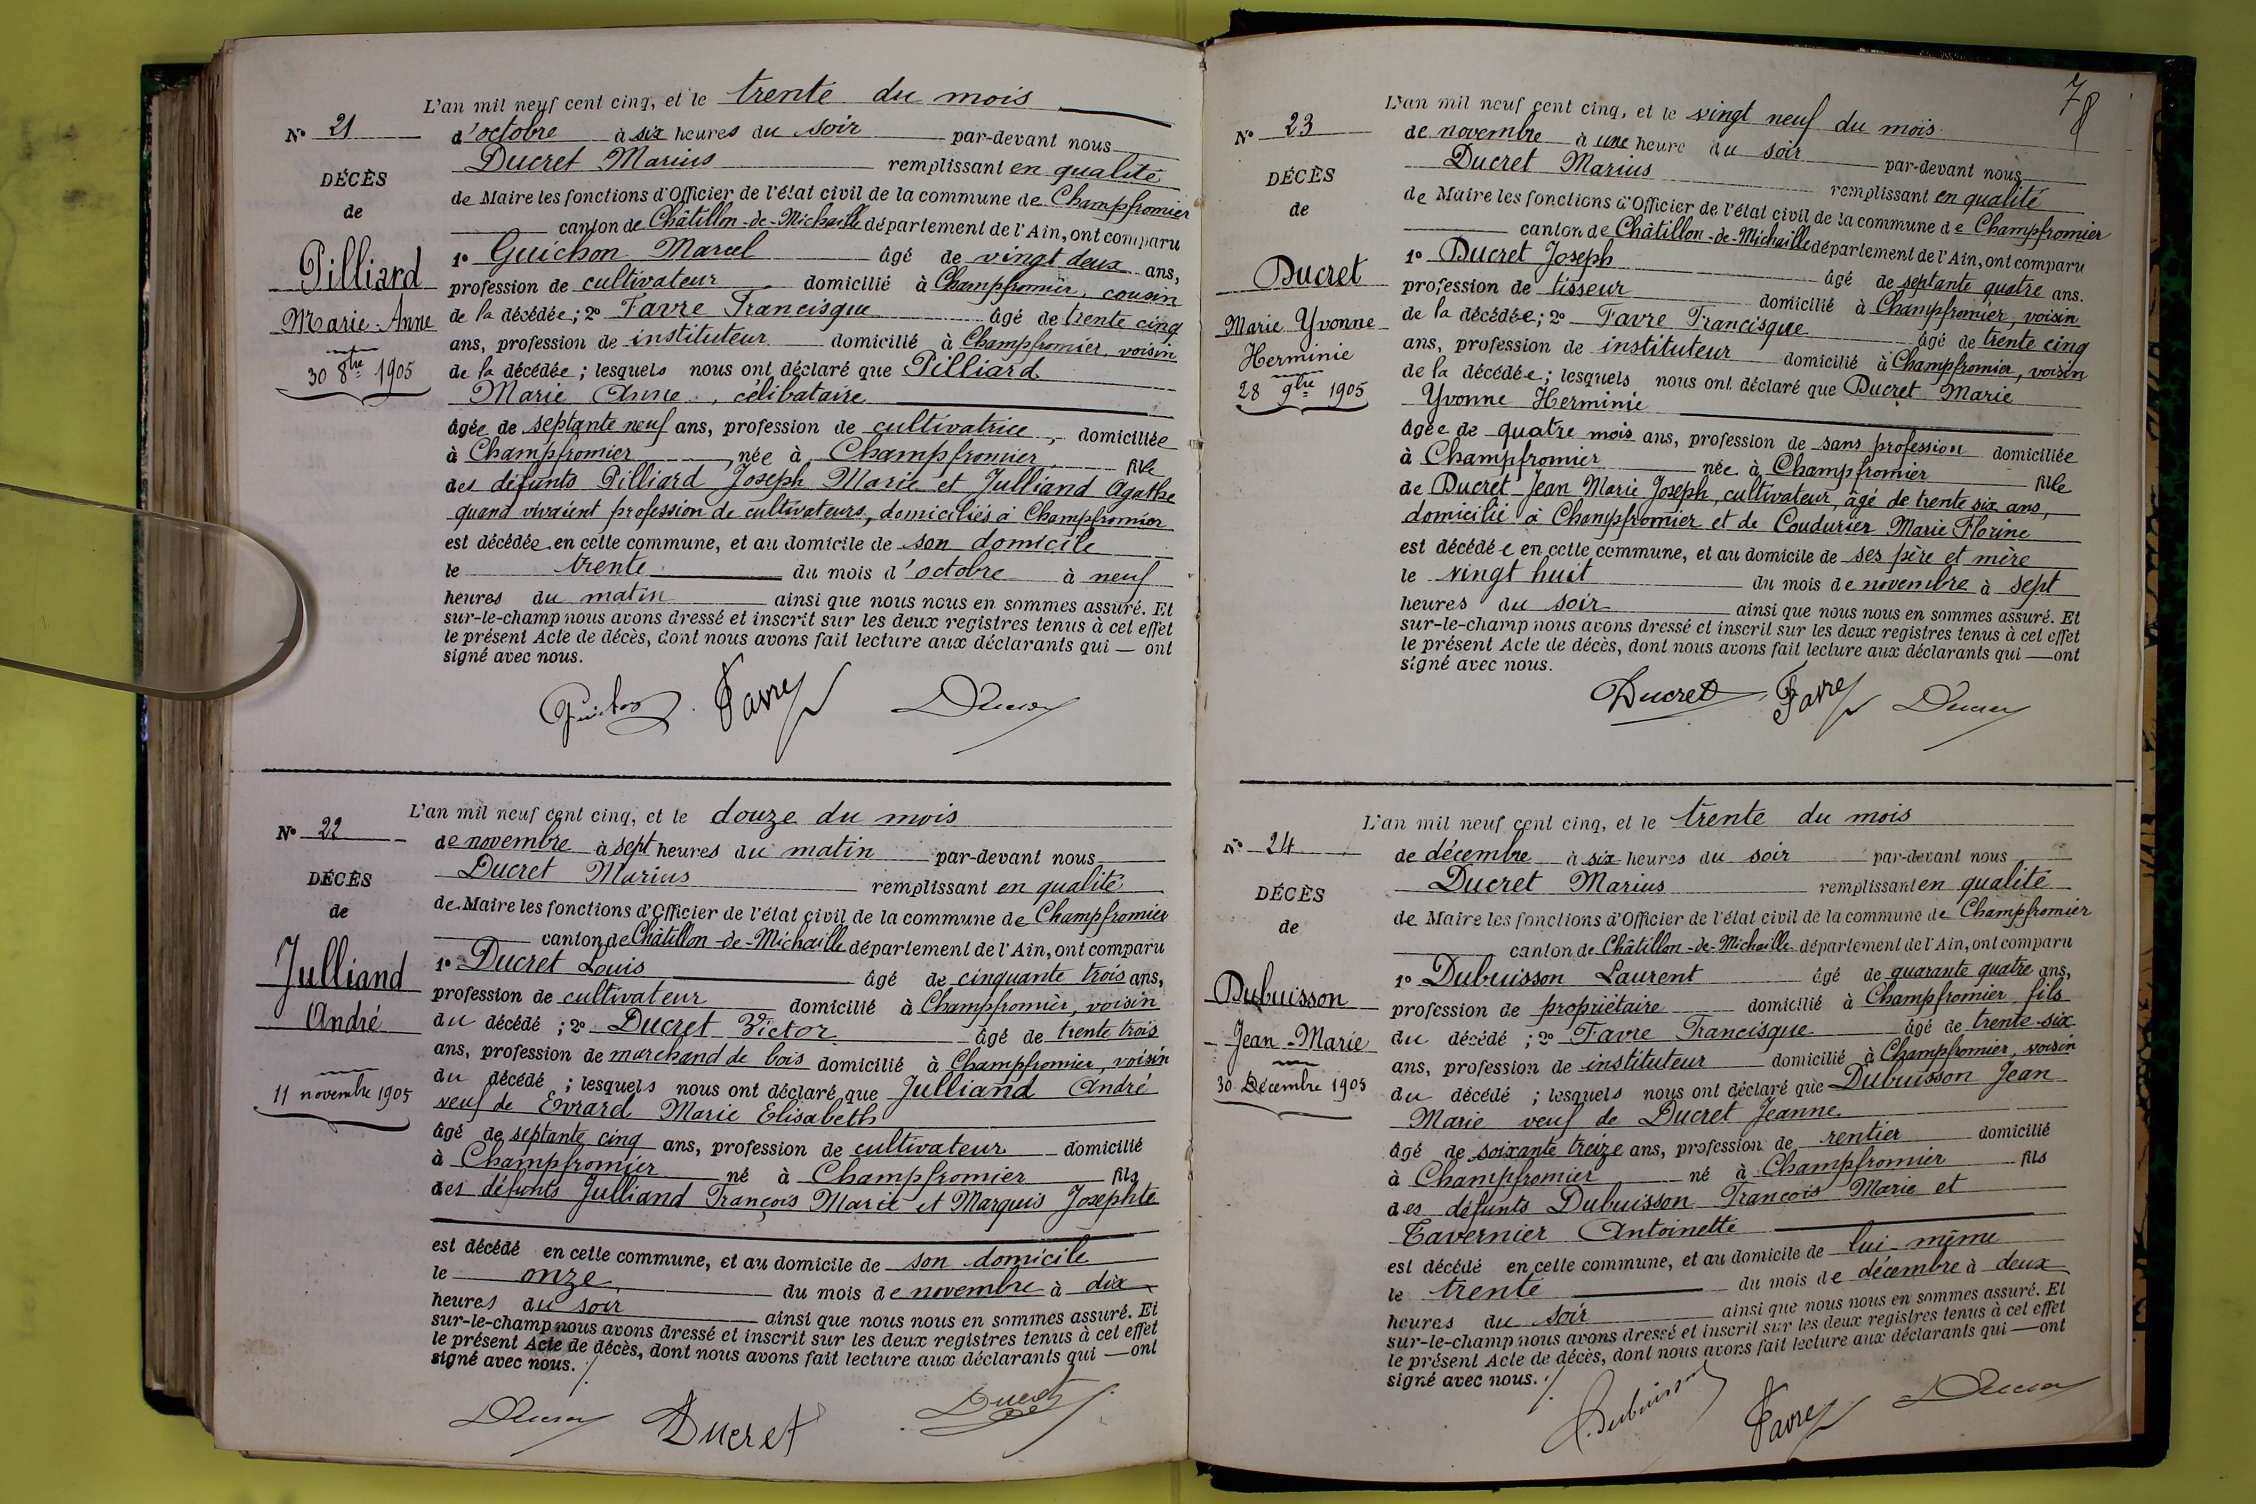 L'an mil neuf cent cinq, et le trente du mois
N° 21
d'octobre à six heures du soir par-devant nous
Ducret Marius remplissant en qualité
DÉCÈS
de Maire les fonctions d'Officier de l'état civil de la commune de Champfromier
de
canton de Châtillon-de-Michaille département de l'Ain, ont comparu
Pilliard
1° Guichon Marcel âgé de vingt deux ans,
profession de cultivateur domicilié à Champfromier, cousin
Marie-Anne
de la décédée; 2° Favre Francisque âgé de trente cinq
ans, profession de instituteur domicilié à Champfromier, voisin
30 8bre 1905
de la décédée; lesquels nous ont déclaré que Pilliard
Marie Anne, célibataire
âgée de septante neuf ans, profession de cultivatrice, domiciliée
à Champfromier née à Champfromier fille
des défunts Pilliard Joseph Marie et Julliand Agathe
quand vivaient profession de cultivateurs, domiciliés à Champfromier
est décédée en cette commune, et au domicile de son domicile
le trente du mois d'octobre à neuf
heures du matin ainsi que nous nous en sommes assuré. Et
sur-le-champ nous avons dressé et inscrit sur les deux registres tenus à cet effet
le présent Acte de décès, dont nous avons fait lecture aux déclarants qui — ont
signé avec nous.
Guichon Favre Ducret
L'an mil neuf cent cinq, et le douze du mois
N° 22
de novembre à sept heures du matin par-devant nous
Ducret Marius remplissant en qualité
DÉCÈS
de Maire les fonctions d'Officier de l'état civil de la commune de Champfromier
de
canton de Châtillon-de-Michaille département de l'Ain, ont comparu
Julliand
1° Ducret Louis âgé de cinquante trois ans,
profession de cultivateur domicilié à Champfromier, voisin
André
du décédé; 2° Ducret Victor âgé de trente trois
ans, profession de marchand de bois domicilié à Champfromier, voisin
11 novembre 1905
du décédé; lesquels nous ont déclaré que Julliand André
veuf de Evrard Marie Elisabeth
âgé de septante cinq ans, profession de cultivateur domicilié
à Champfromier né à Champfromier fils
des défunts Julliand François Marie et Marquis Josephte
est décédé en cette commune, et au domicile de son domicile
le onze du mois de novembre à dix
heures du soir ainsi que nous nous en sommes assuré. Et
sur-le-champ nous avons dressé et inscrit sur les deux registres tenus à cet effet
le présent Acte de décès, dont nous avons fait lecture aux déclarants qui — ont
signé avec nous.
Ducret Ducret Ducret
78
L'an mil neuf cent cinq, et le vingt neuf du mois
N° 23
de novembre à une heure du soir par-devant nous
Ducret Marius remplissant en qualité
DÉCÈS
de Maire les fonctions d'Officier de l'état civil de la commune de Champfromier
de
canton de Châtillon-de-Michaille département de l'Ain, ont comparu
Ducret
1° Ducret Joseph âgé de septante quatre ans.
profession de tisseur domicilié à Champfromier, voisin
Marie Yvonne
de la décédée; 2° Favre Francisque âgé de trente cinq
Herminie
ans, profession de instituteur domicilié à Champfromier, voisin
28 9bre 1905
de la décédée; lesquels nous ont déclaré que Ducret Marie
Yvonne Herminie
âgée de quatre mois ans, profession de sans profession domiciliée
à Champfromier née à Champfromier fille
de Ducret Jean Marie Joseph, cultivateur, âgé de trente six ans,
domicilié à Champfromier et de Coudurier Marie Florine
est décédée en cette commune, et au domicile de ses père et mère
le vingt huit du mois de novembre à sept
heures du soir ainsi que nous nous en sommes assuré. Et
sur-le-champ nous avons dressé et inscrit sur les deux registres tenus à cet effet
le présent Acte de décès, dont nous avons fait lecture aux déclarants qui — ont
signé avec nous.
Ducret Favre Ducret
L'an mil neuf cent cinq, et le trente du mois
N° 24
de décembre à six heures du soir par-devant nous
Ducret Marius remplissant en qualité
DÉCÈS
de Maire les fonctions d'Officier de l'état civil de la commune de Champfromier
de
canton de Châtillon-de-Michaille département de l'Ain, ont comparu
Dubuisson
1° Dubuisson Laurent âgé de quarante quatre ans,
profession de propriétaire domicilié à Champfromier fils
Jean-Marie
du décédé; 2° Favre Francisque âgé de trente-six
ans, profession de instituteur domicilié à Champfromier, voisin
30 Décembre 1905
du décédé; lesquels nous ont déclaré que Dubuisson Jean
Marie veuf de Ducret Jeanne
âgé de soixante treize ans, profession de rentier domicilié
à Champfromier né à Champfromier fils
des défunts Dubuisson François Marie et
Tavernier Antoinette
est décédé en cette commune, et au domicile de lui-même
le trente du mois de décembre à deux
heures du soir ainsi que nous nous en sommes assuré. Et
sur-le-champ nous avons dressé et inscrit sur les deux registres tenus à cet effet
le présent Acte de décès, dont nous avons fait lecture aux déclarants qui — ont
signé avec nous.
L. Dubuisson Favre Ducret